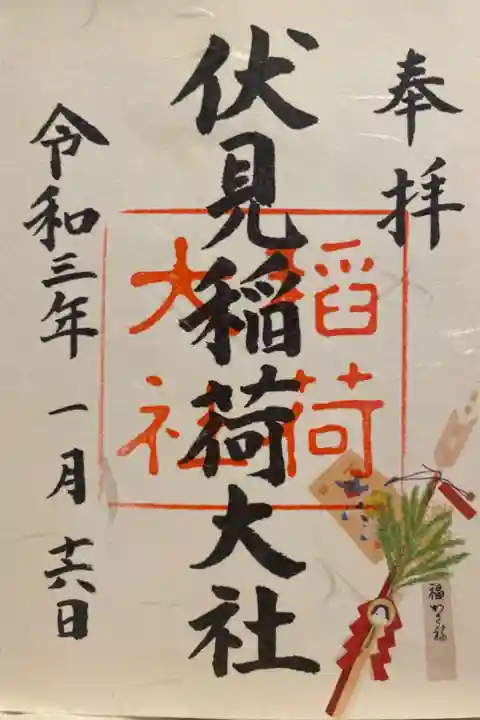 奉拝
伏見稲荷大社
稲荷
大社
令和三年 一月 十六日